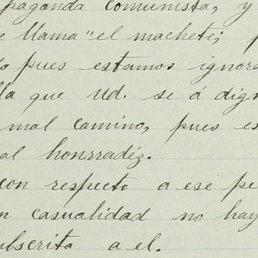 paganda comunista, y
e llama "el machete;
o pues estamos ignora
lla que Ud. se á dign
mal camino, pues es
al honrradiz.
con respecto a ese pe
n casualidad no hay
ubscrito a el.